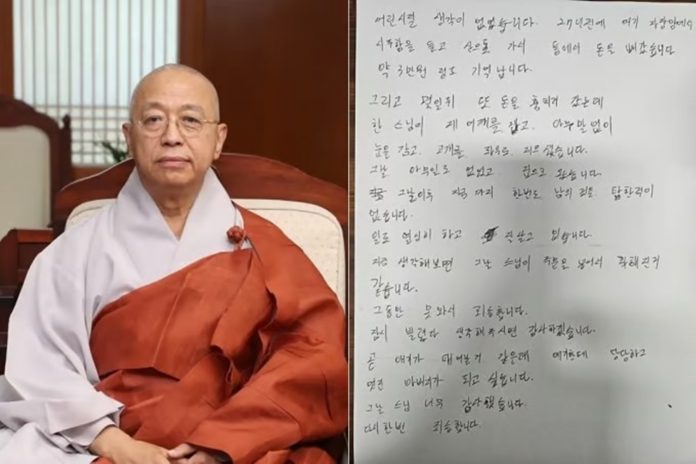 어린시절 생각이 없었습니다. 27년전에 여기 자장암에서
시주함을 들고 산으로 가서 통에서 돈을 빼갔습니다
약 3만원 정도 기억납니다.
그리고 몇일뒤 또 돈을 훔치러 갔는데
한 스님이 제 어깨를 잡고. 아무말 없이
눈을 감고. 고개를 좌우로 저으셨습니다.
그날 아무일도 없었고 집으로 왔습니다.
그날이후 지금까지 한번도 남의 것을 탐한적이
없습니다.
일도 열심히 하고 잘 살고 있습니다.
지금 생각해보면 그날 스님이 주문을 넣어서 착해진거
같습니다.
그동안 못와서 죄송합니다.
잠시 빌렸다 생각해주시면 감사하겠습니다.
곧 애기가 태어날거 같은데 애기한테 당당하고
멋진 아버지가 되고 싶습니다.
그날 스님 너무 감사했습니다.
다시 한번 죄송합니다.